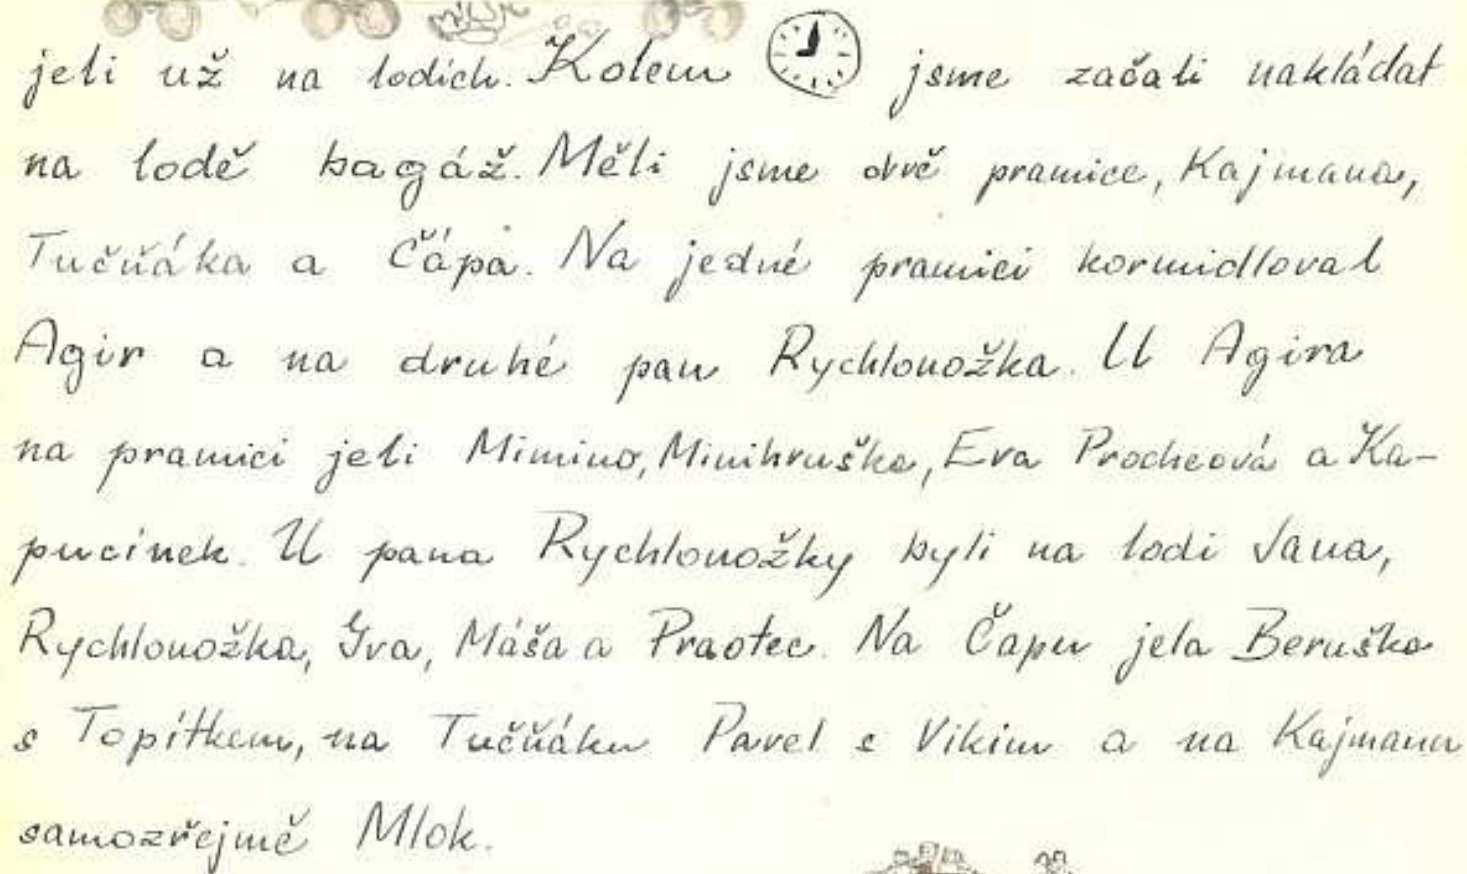 jeli už na lodích. Kolem jsme začali nakládat
na lodě bagáž. Měli jsme dvě pramice, Kajmana,
Tučňáka a Čápa. Na jedné pramici kormidloval
Agir a na druhé pan Rychlonožka. U Agira
na pramici jeli Mimino, Minihruška, Eva Procheová a Ka-
pucínek. U pana Rychlonožky byli na lodi Jana,
Rychlonožka, Iva, Máša a Praotec. Na Čapu jela Beruška
s Topítkem, na Tučňáku Pavel s Vikim a na Kajmanu
samozřejmě Mlok.